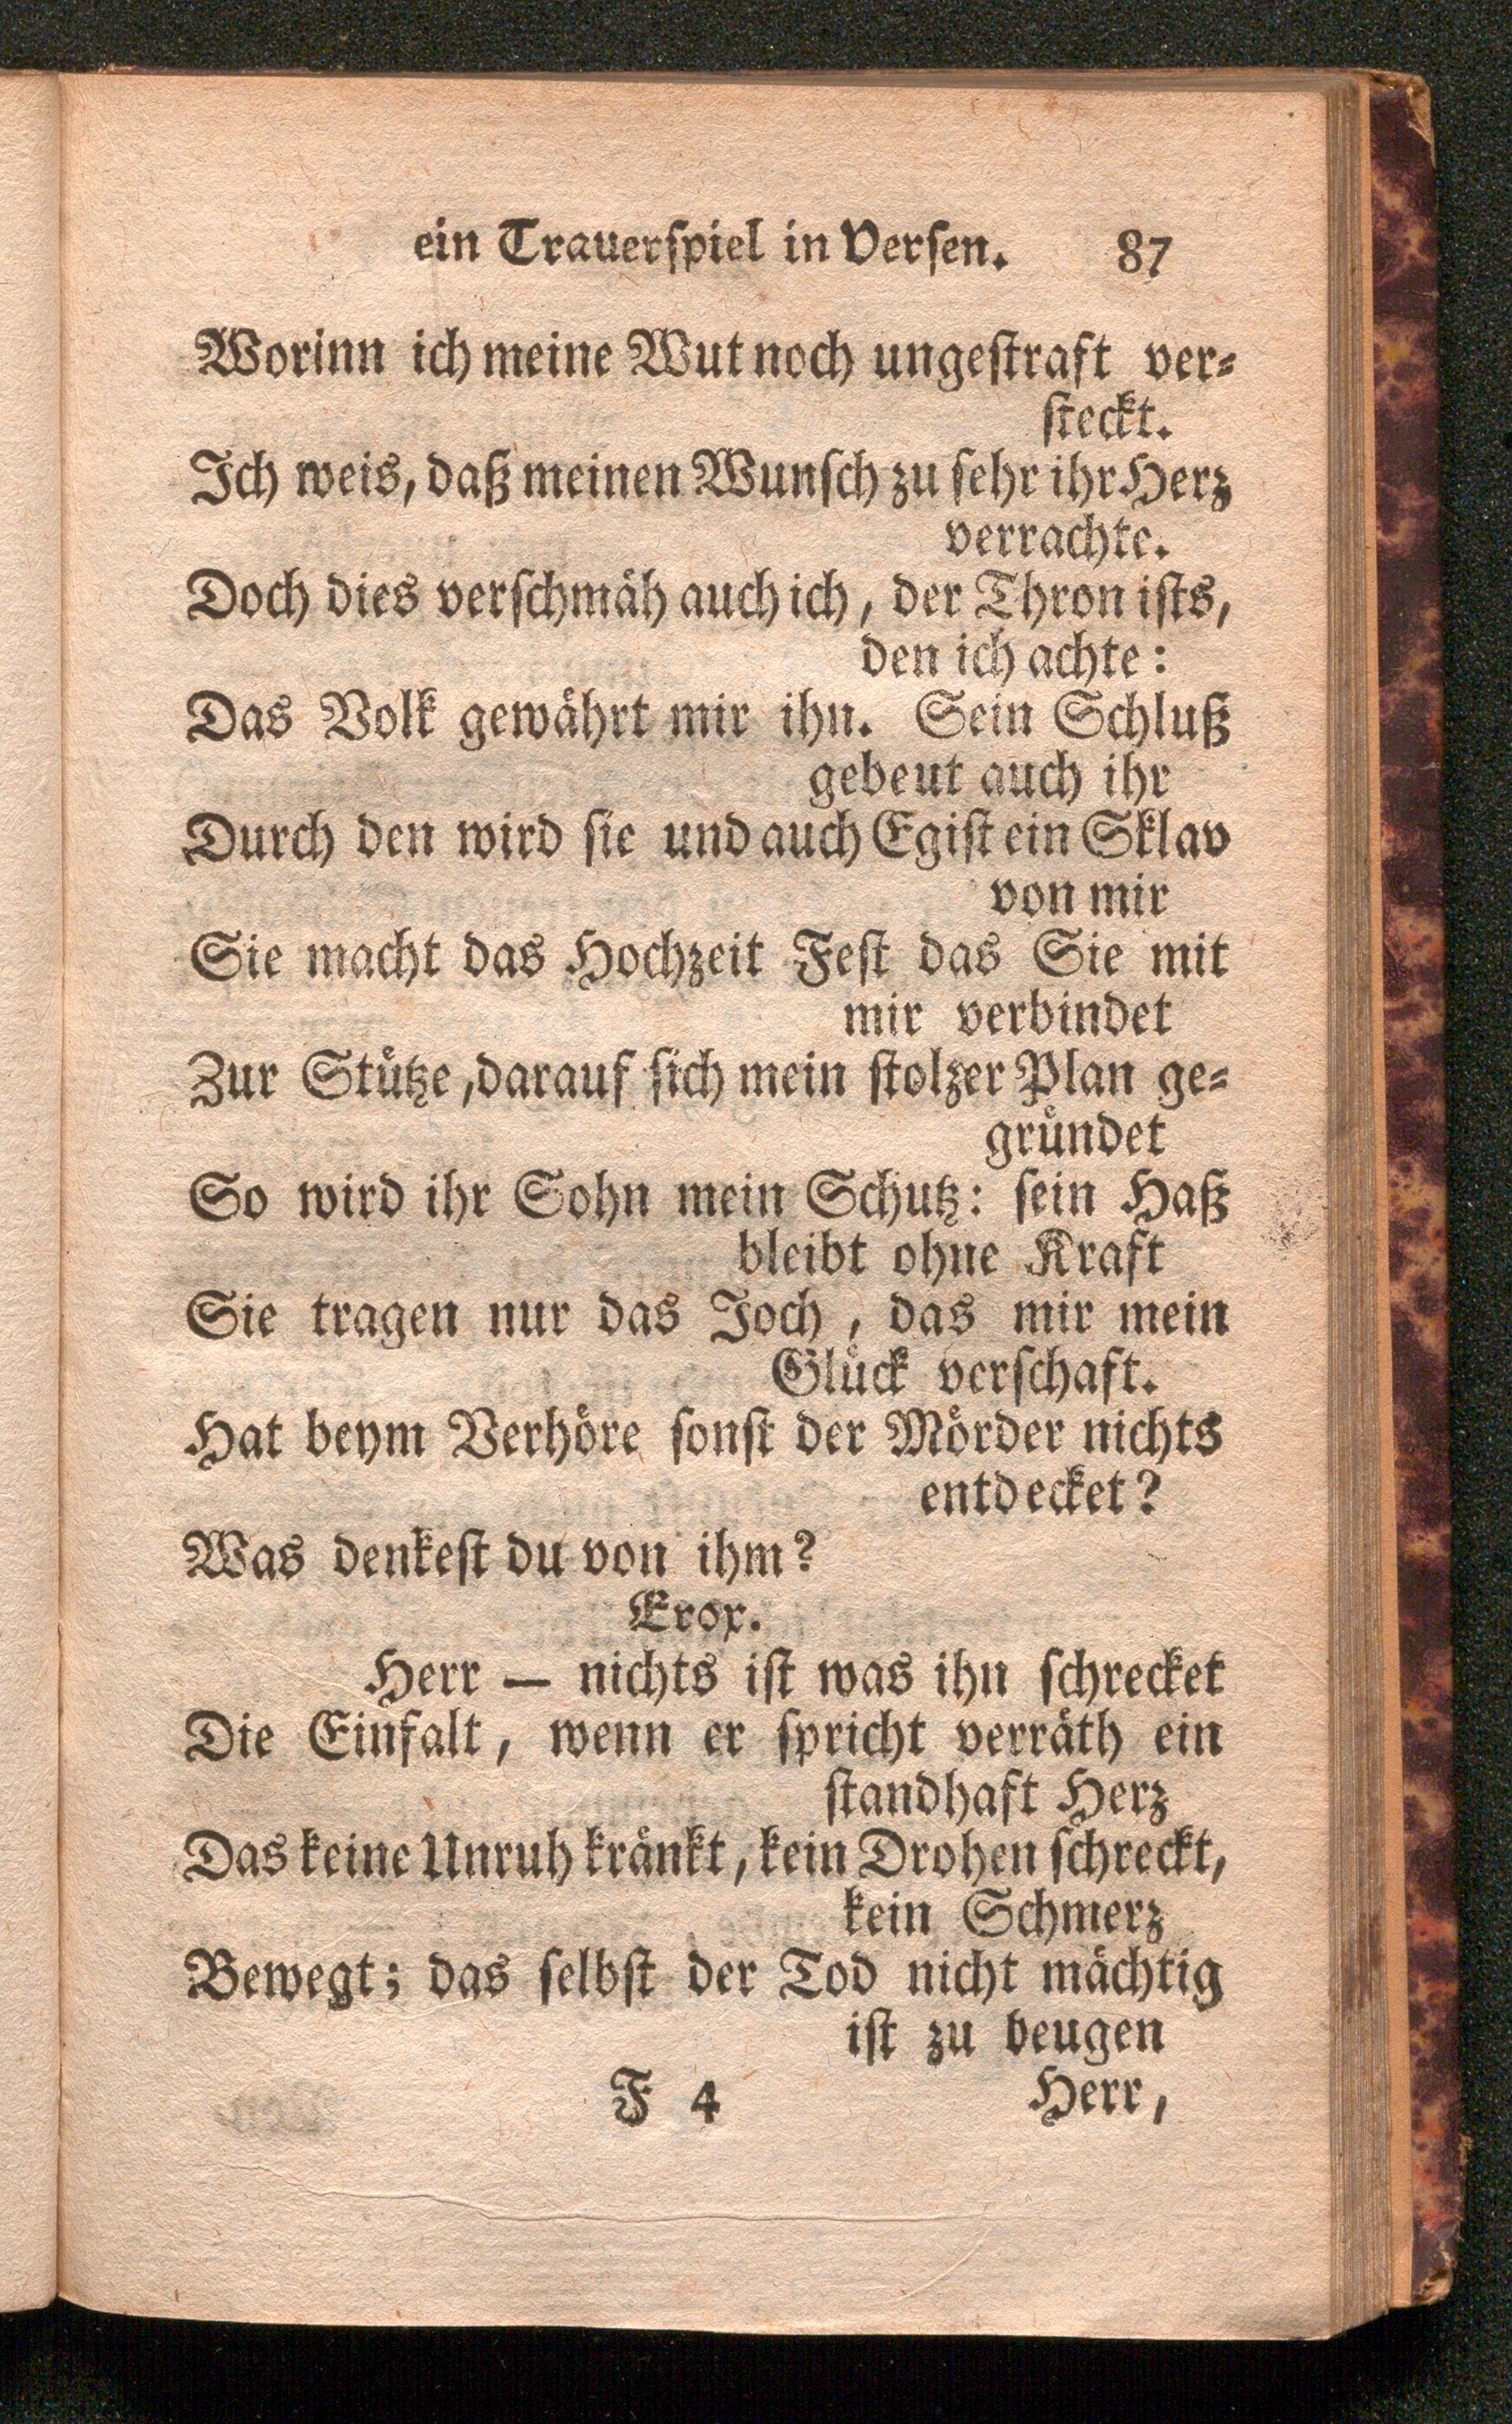 ein Trauerſpiel in Verſen. 87
Worinn ich meine Wut noch ungeſtraft ver-
ſteckt.
Ich weis, daß meinen Wunſch zu ſehr ihr Herz
verrachte.
Doch dies verſchmäh auch ich, der Thron iſts,
den ich achte:
Das Volk gewährt mir ihn. Sein Schluß
gebeut auch ihr
Durch den wird ſie und auch Egiſt ein Sklav
von mir
Sie macht das Hochzeit Feſt das Sie mit
mir verbindet
Zur Stütze, darauf ſich mein ſtolzer Plan ge-
gründet
So wird ihr Sohn mein Schutz: ſein Haß
bleibt ohne Kraft
Sie tragen nur das Joch, das mir mein
Glück verſchaft.
Hat beym Verhöre ſonſt der Mörder nichts
entdecket?
Was denkeſt du von ihm?
Erox.
Herr — nichts iſt was ihn ſchrecket
Die Einfalt, wenn er ſpricht verräth ein
ſtandhaft Herz
Das keine Unruh kränkt, kein Drohen ſchreckt,
kein Schmerz
Bewegt; das ſelbſt der Tod nicht mächtig
iſt zu beugen
F 4 Herr,